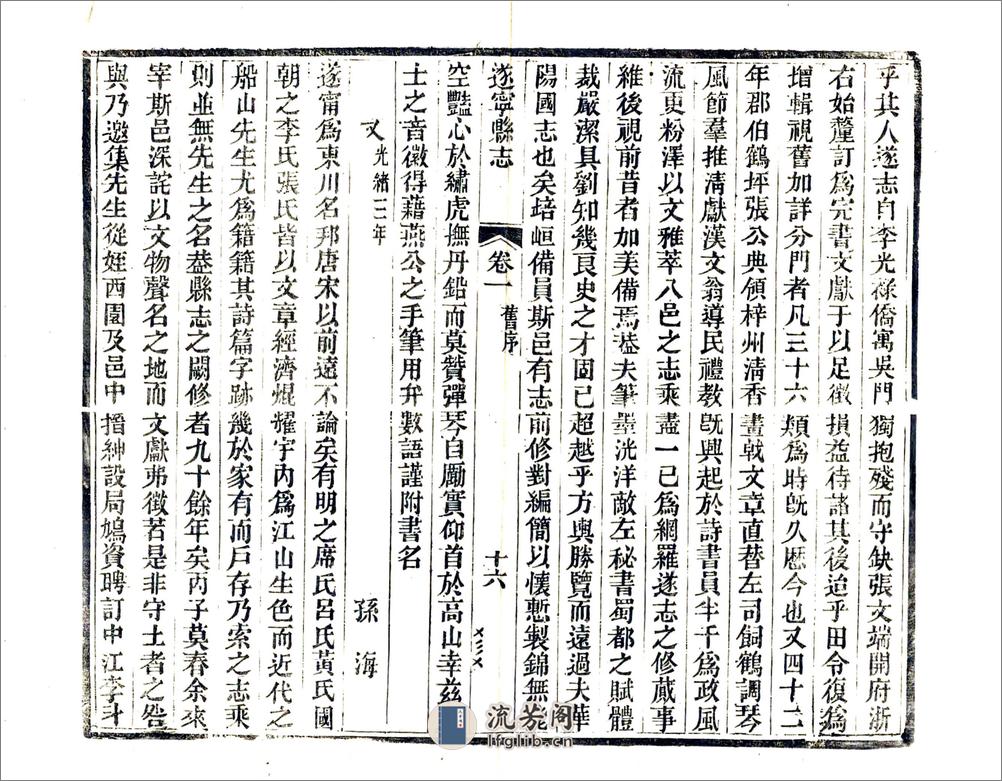 乎其人遂志自李光祿僑寓吳門獨抱殘而守缺張文端開府浙
右始釐訂爲完書文獻于以足徵損益待諸其後迨乎田令復爲
增輯視舊加詳分門者凡三十六類爲時旣久歷今也又四十二
年郡伯鶴坪張公典領梓州淸香畫戟文章直替左司飼鶴調琴
風節羣推淸獻漢文翁導民禮教旣興起於詩書員半千爲政風
流更粉澤以文雅萃八邑之志乘盡一己爲網羅遂志之修蕆事
維後視前昔者加美備焉葢夫筆墨洸洋敵左秘書蜀都之賦體
裁嚴潔具劉知幾良史之才固已超越乎方輿勝覽而遠過夫華
陽國志也矣培峘備員斯邑有志前修對編簡以懷慙製錦無
遂寧縣志
卷一
舊序
十六
空豔心於繡虎撫丹鉛而莫贊彈琴自勵實仰首於高山幸茲
士之音徽得藉燕公之手筆用弁數語謹附書名
又光緒三年
孫海
遂甯爲東川名邦唐宋以前遠不論矣有明之席氏呂氏黃氏國
朝之李氏張氏皆以文章經濟焜耀宇內爲江山生色而近代之
船山先生尤爲籍籍其詩篇字跡幾於家有而戶存乃索之志乘
則並無先生之名葢縣志之闕修者九十餘年矣丙子莫春余來
宰斯邑深詫以文物聲名之地而文獻弗徵若是非守土者之咎
與乃邀集先生從姪西園及邑中搢紳設局鳩資聘訂中江李才
流芳阁
lfglib.cn